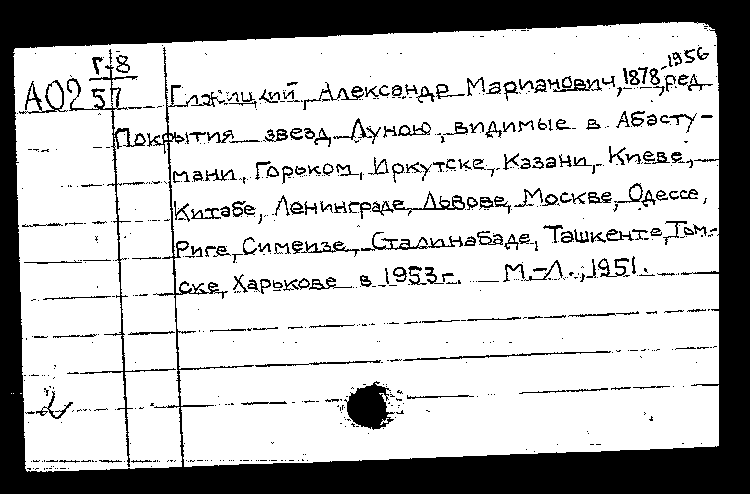 Г-8
А02 57 Гижицкий, Александр Марианович, 1878-1956, ред
Покрытия звезд Луною, видимые в Абасту-
мани, Горьком, Иркутске, Казани, Киеве,
Китабе, Ленинграде, Львове, Москве, Одессе,
Риге, Симеизе, Сталинабаде, Ташкенте, Том-
ске, Харькове в 1953г. М.-Л., 1951.
2